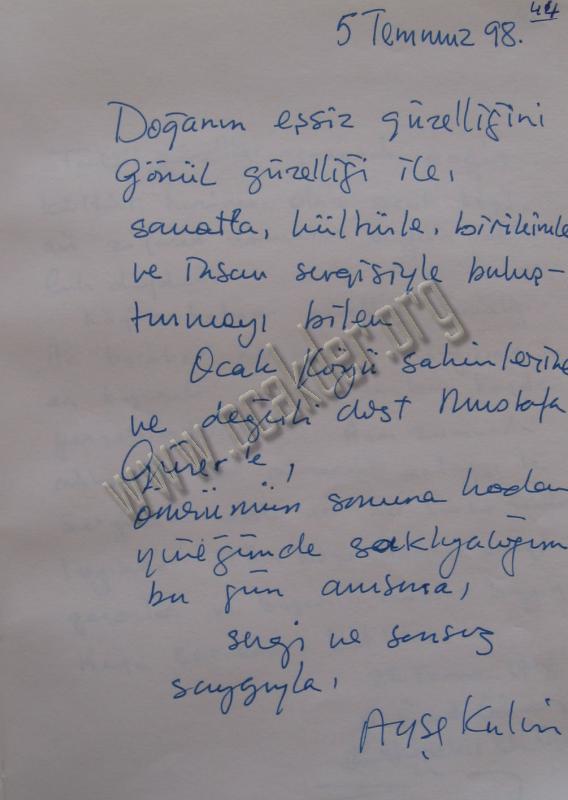 44
5 Temmuz 98.
Doğanın eşsiz güzelliğini
Gönül güzelliği ile,
sanatla, kültürle, birikimle
ve insan sevgisiyle buluş-
turmayı bilen
Ocak Köyü sakinlerine
ve değerli dost Mustafa
Gürer'e,
ömrümün sonuna kadar
yüreğimde saklıyacağım
bu gün anısına,
sevgi ve sonsuz
saygıyla,
Ayşe Kulin
www.ocakder.org